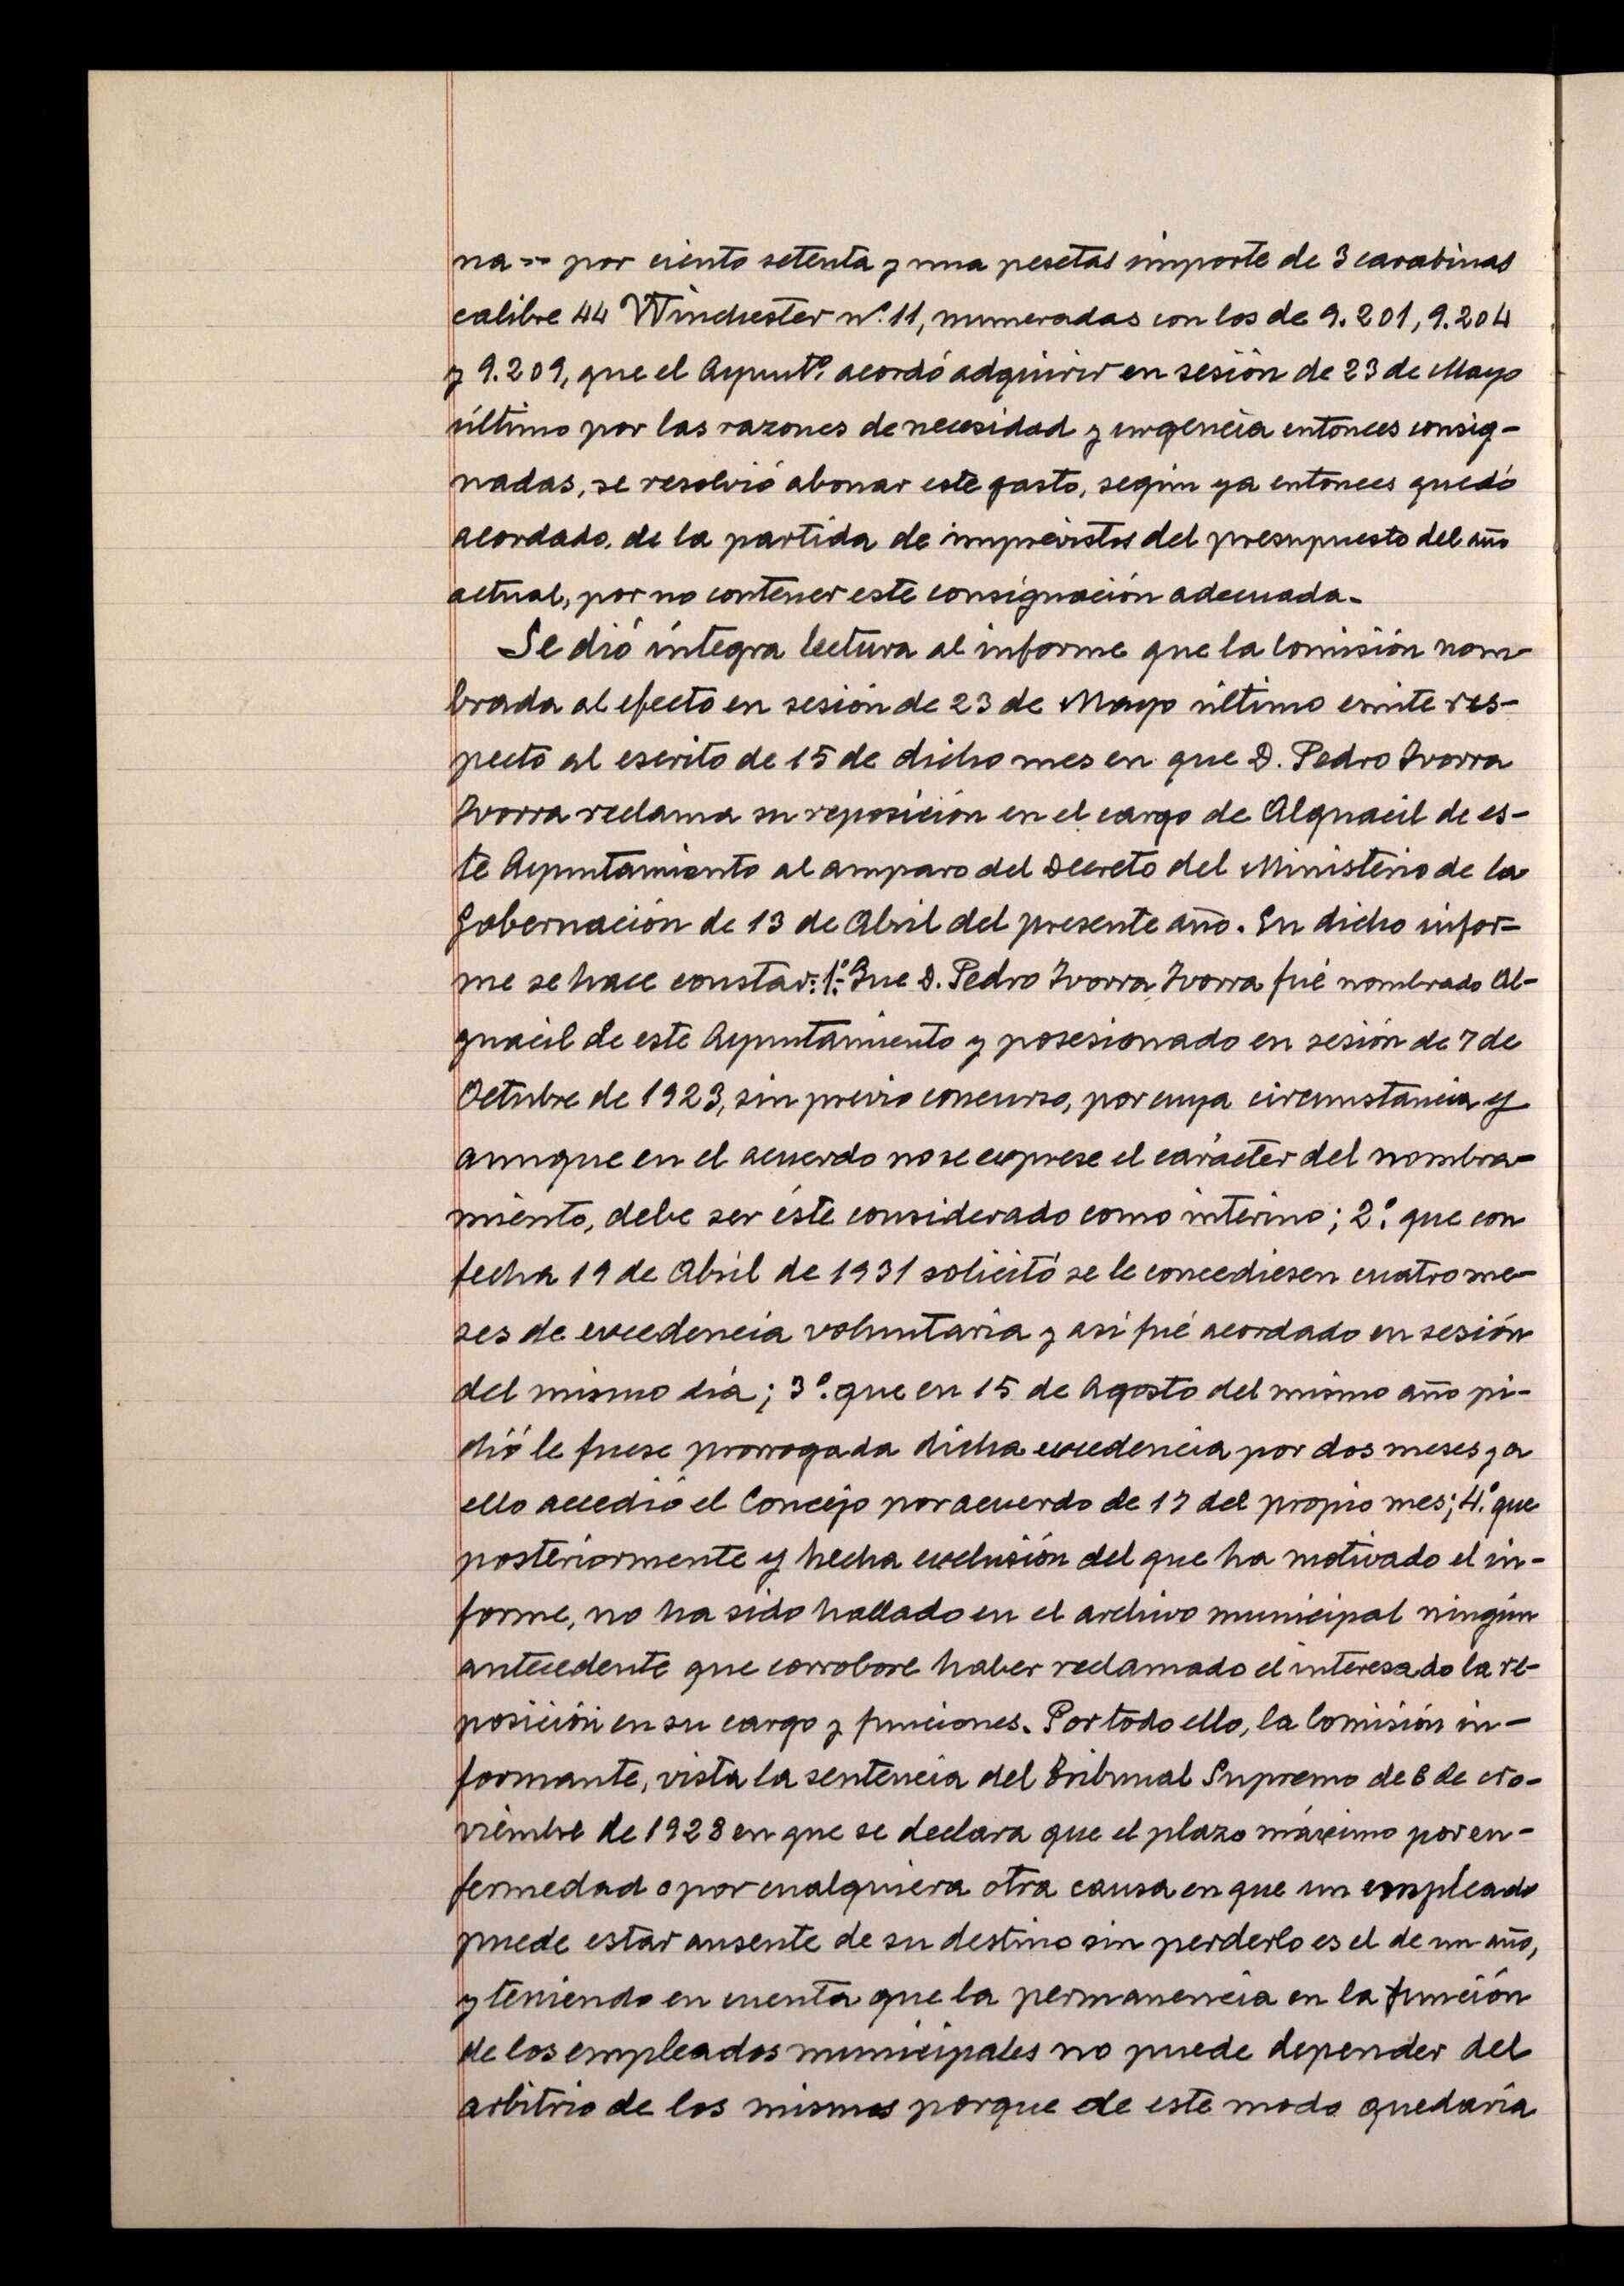 na -- por ciento setenta y una pesetas importe de 3 carabinas
calibre 44 Winchester nº. 11, numeradas con los de 9.201, 9.204
y 9.209, que el Ayuntº. acordó adquirir en sesión de 23 de Mayo
último por las razones de necesidad y urgencia entonces consig-
nadas, se resolvió abonar este gasto, según ya entonces quedó
acordado, de la partida de imprevistos del presupuesto del año
actual, por no contener este consignación adecuada.
Se dió íntegra lectura al informe que la Comisión nom-
brada al efecto en sesión de 23 de Mayo último emite res-
pecto al escrito de 15 de dicho mes en que D. Pedro Ivorra
Ivorra reclama su reposición en el cargo de Alguacil de es-
te Ayuntamiento al amparo del Decreto del Ministerio de la
Gobernación de 13 de Abril del presente año. En dicho infor-
me se hace constar: 1º. Que D. Pedro Ivorra Ivorra fué nombrado Al-
guacil de este Ayuntamiento y posesionado en sesión de 7 de
Octubre de 1923, sin previo concurso, por cuya circunstancia y
aunque en el acuerdo no se exprese el carácter del nombra-
miento, debe ser éste considerado como interino; 2º. que con
fecha 19 de Abril de 1931 solicitó se le concediesen cuatro me-
ses de excedencia voluntaria y así fué acordado en sesión
del mismo día; 3º. que en 15 de Agosto del mismo año pi-
dió le fuese prorrogada dicha excedencia por dos meses y a
ello accedió el Concejo por acuerdo de 17 del propio mes; 4º. que
posteriormente y hecha exclusión del que ha motivado el in-
forme, no ha sido hallado en el archivo municipal ningún
antecedente que corrobore haber reclamado el interesado la re-
posición en su cargo y funciones. Por todo ello, la Comisión in-
formante, vista la sentencia del Tribunal Supremo de 6 de No-
viembre de 1928 en que se declara que el plazo máximo por en-
fermedad o por cualquiera otra causa en que un empleado
puede estar ausente de su destino sin perderlo es el de un año,
y teniendo en cuenta que la permanencia en la función
de los empleados municipales no puede depender del
arbitrio de los mismos porque de este modo quedaría